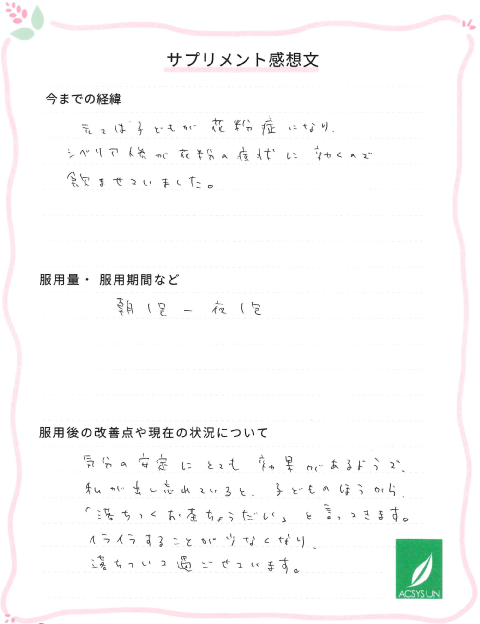 サプリメント感想文
今までの経緯
元々は子どもが花粉症になり、
シベリア人参が花粉の症状に効くので
飲ませていました。
服用量・服用期間など
朝1包 ー 夜1包
服用後の改善点や現在の状況について
気分の安定にとても効果があるようで、
私が出し忘れていると、子どものほうから、
「落ちつくお薬ちょうだい」と言ってきます。
イライラすることが少なくなり、
落ちついて過ごせています。
ACSYSUN